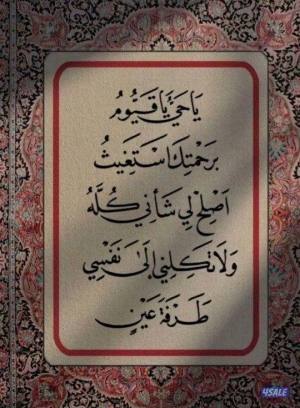 يَا حَيُّ يَا قَيُّومُ
بِرَحْمَتِكَ اَسْتَغِيثُ
اَصْلِحْ لِي شَأْنِي كُلَّهُ
وَلَا تَكِلْنِي إِلَى نَفْسِي
طَرْفَةَ عَيْنٍ
4SALE